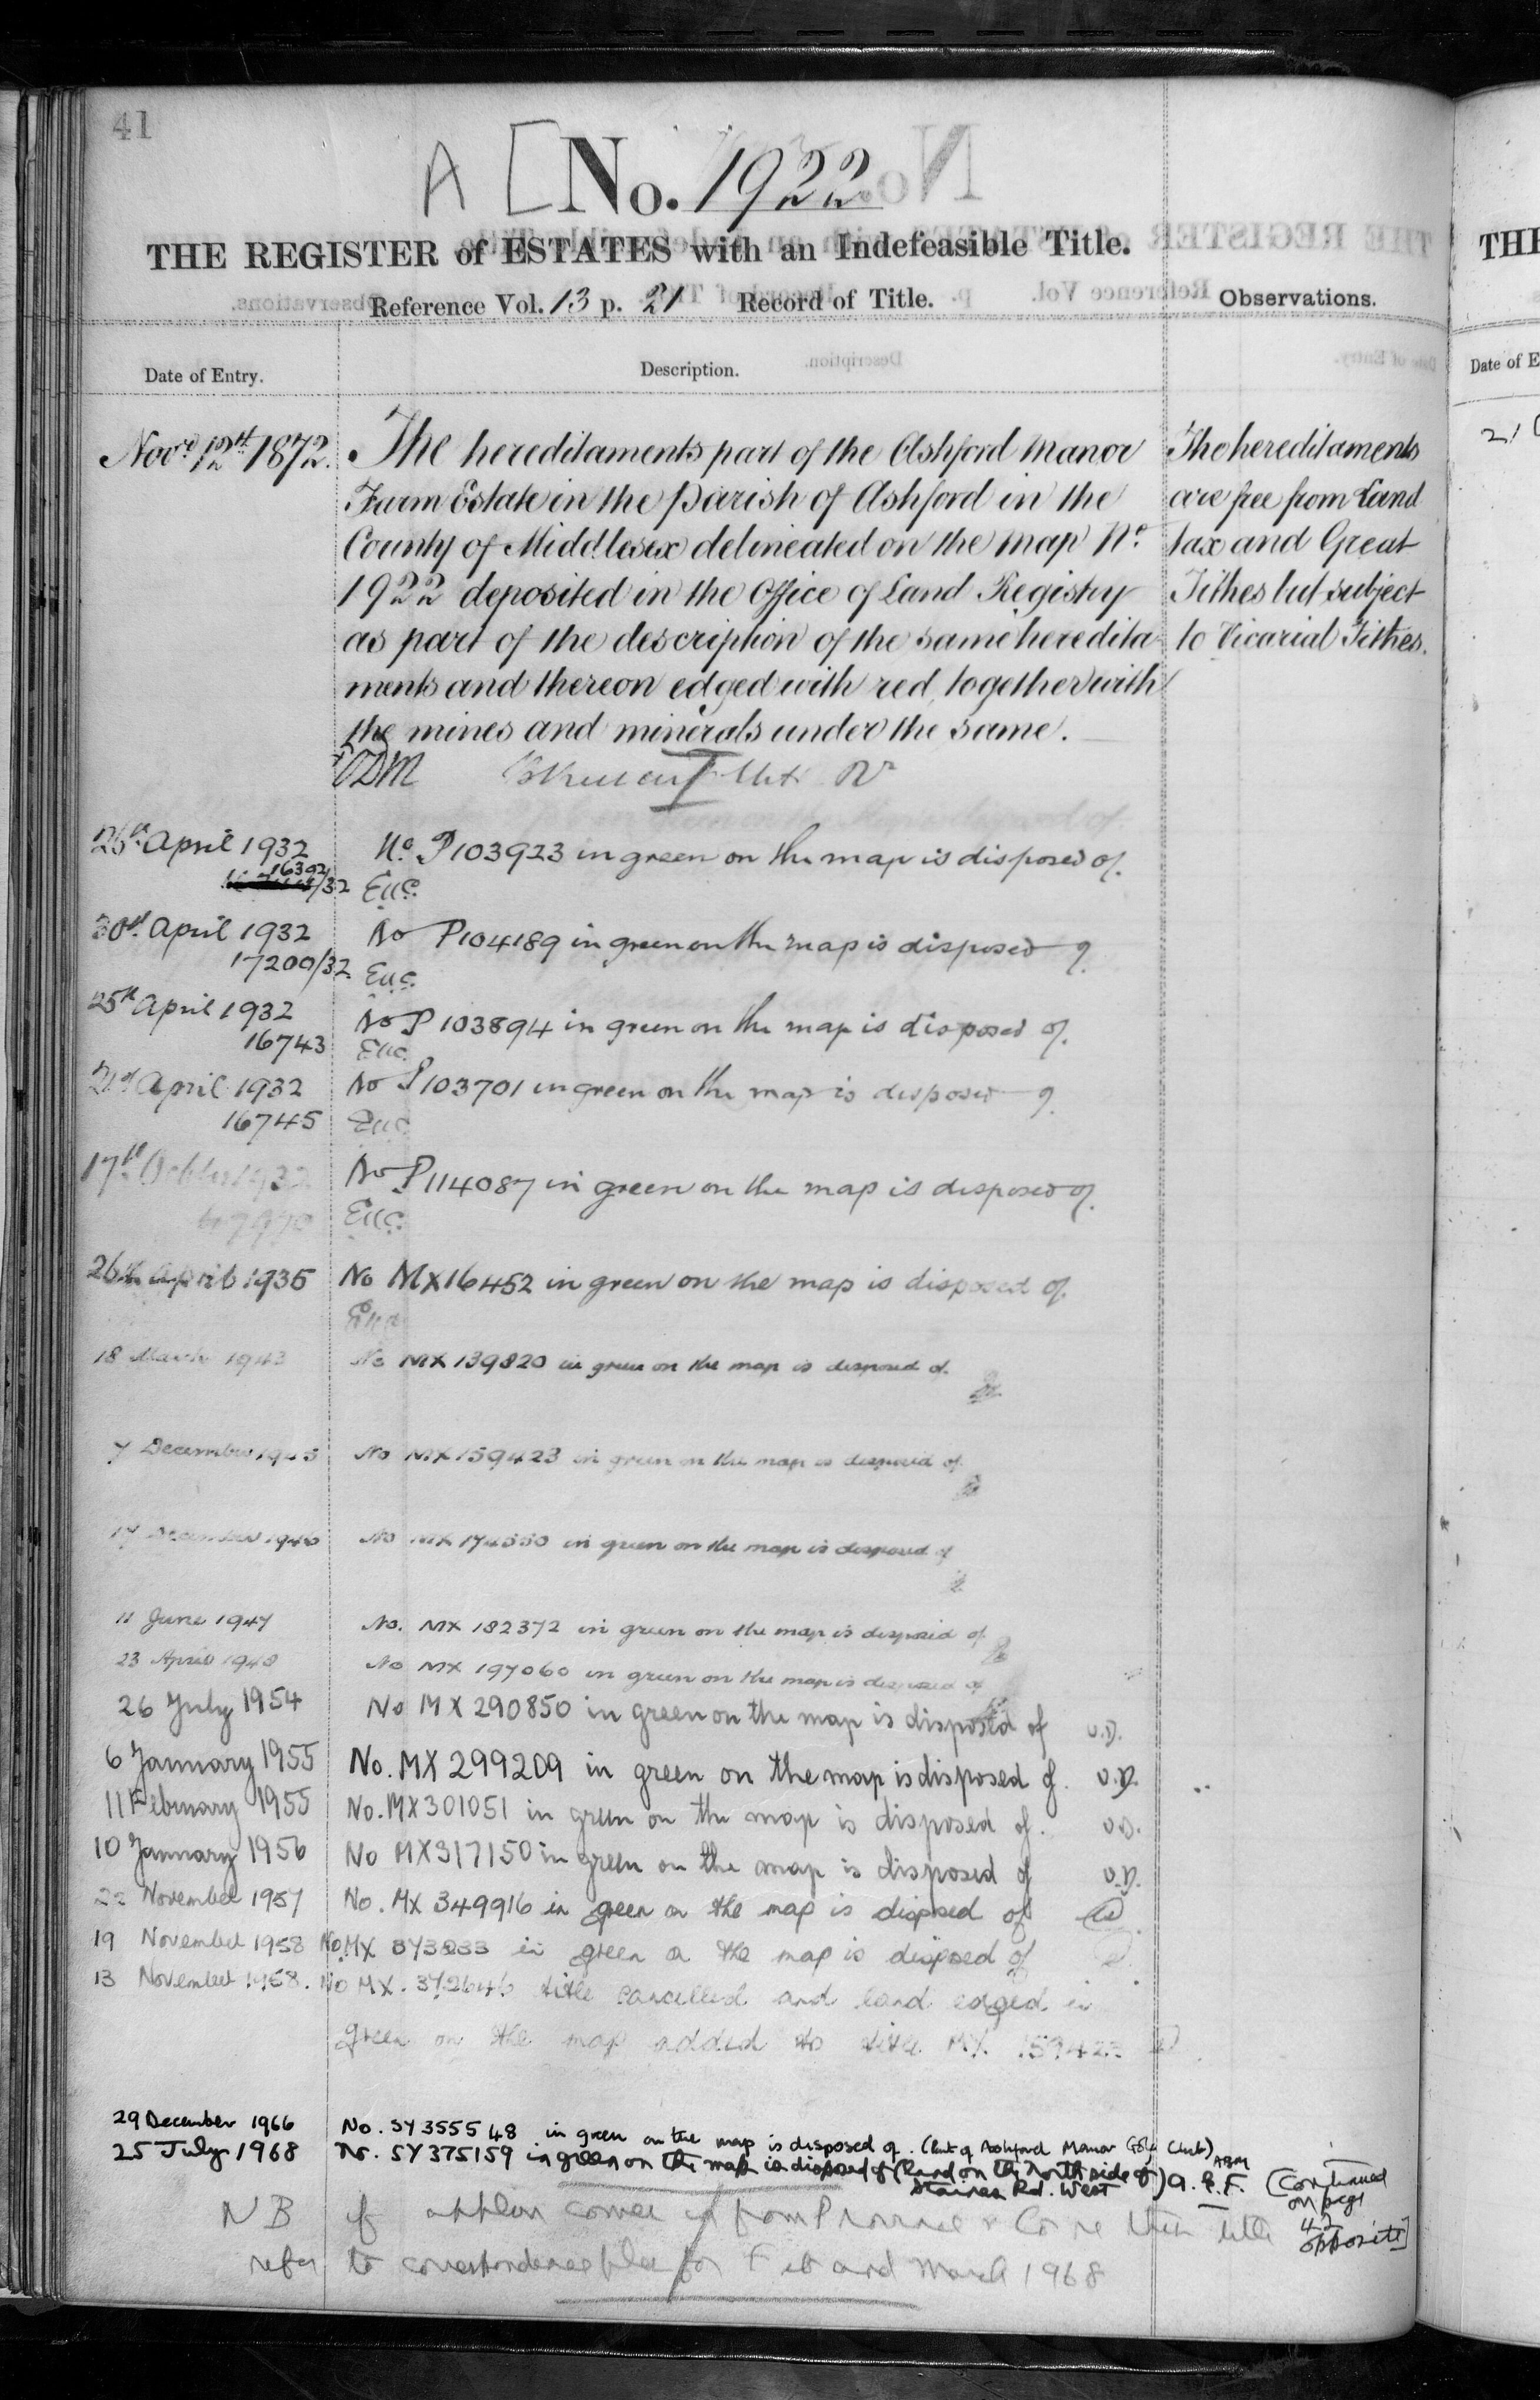 41
A [ No. 1922
THE REGISTER of ESTATES with an Indefeasible Title.
Reference Vol. 13 p. 21 Record of Title. Observations.
Date of Entry. Description.
Novr. 12th 1872. The hereditaments part of the Ashford Manor
Farm Estate in the parish of Ashford in the
County of Middlesex delineated on the map No.
1922 deposited in the Office of Land Registry
as part of the description of the same heredita-
ments and thereon edged with red, together with
the mines and minerals under the same.
The hereditaments
are free from Land
tax and Great
Tithes but subject
to Vicarial Tithes.
26th April 1932 No. P103923 in green on the map is disposed of.
/32
30th April 1932 No P104189 in green on the map is disposed of.
17200/32
25th April 1932 No P103894 in green on the map is disposed of.
16743
21st April 1932 No P103701 in green on the map is disposed of.
16745
17th October 1932 No P114087 in green on the map is disposed of.
26th April 1935 No MX16452 in green on the map is disposed of.
18 March 1943 No MX 139820 in green on the map is disposed of.
7 December 1945 No MX 159423 in green on the map is disposed of.
December 1946 No MX in green on the map is disposed of
11 June 1947 No. MX 182372 in green on the map is disposed of
23 April 1948 No MX 197060 in green on the map is disposed of
26 July 1954 No MX 290850 in green on the map is disposed of v.D.
6 January 1955 No. MX 299209 in green on the map is disposed of. v.D.
11 February 1955 No. MX301051 in green on the map is disposed of. v.D.
10 January 1956 No MX317150 in green on the map is disposed of v.D.
22 November 1957 No. MX 349916 in green on the map is disposed of
19 November 1958 No. MX 373833 in green on the map is disposed of
13 November 1958. No MX. 372646 title cancelled and land edged in
green on the map added to title MX 159423
29 December 1966 No. SY 355548 in green on the map is disposed of. (Part of Ashford Manor Golf Club) ABM
25 July 1968 No. SY 375159 in green on the map is disposed of (Land on the North side of
Staines Rd. West) A.E.F.
(Continued
on page
42
opposite]
NB if appln comes in from & Co re their title
refer to correspondence file for Feb and March 1968
THE
Date of E